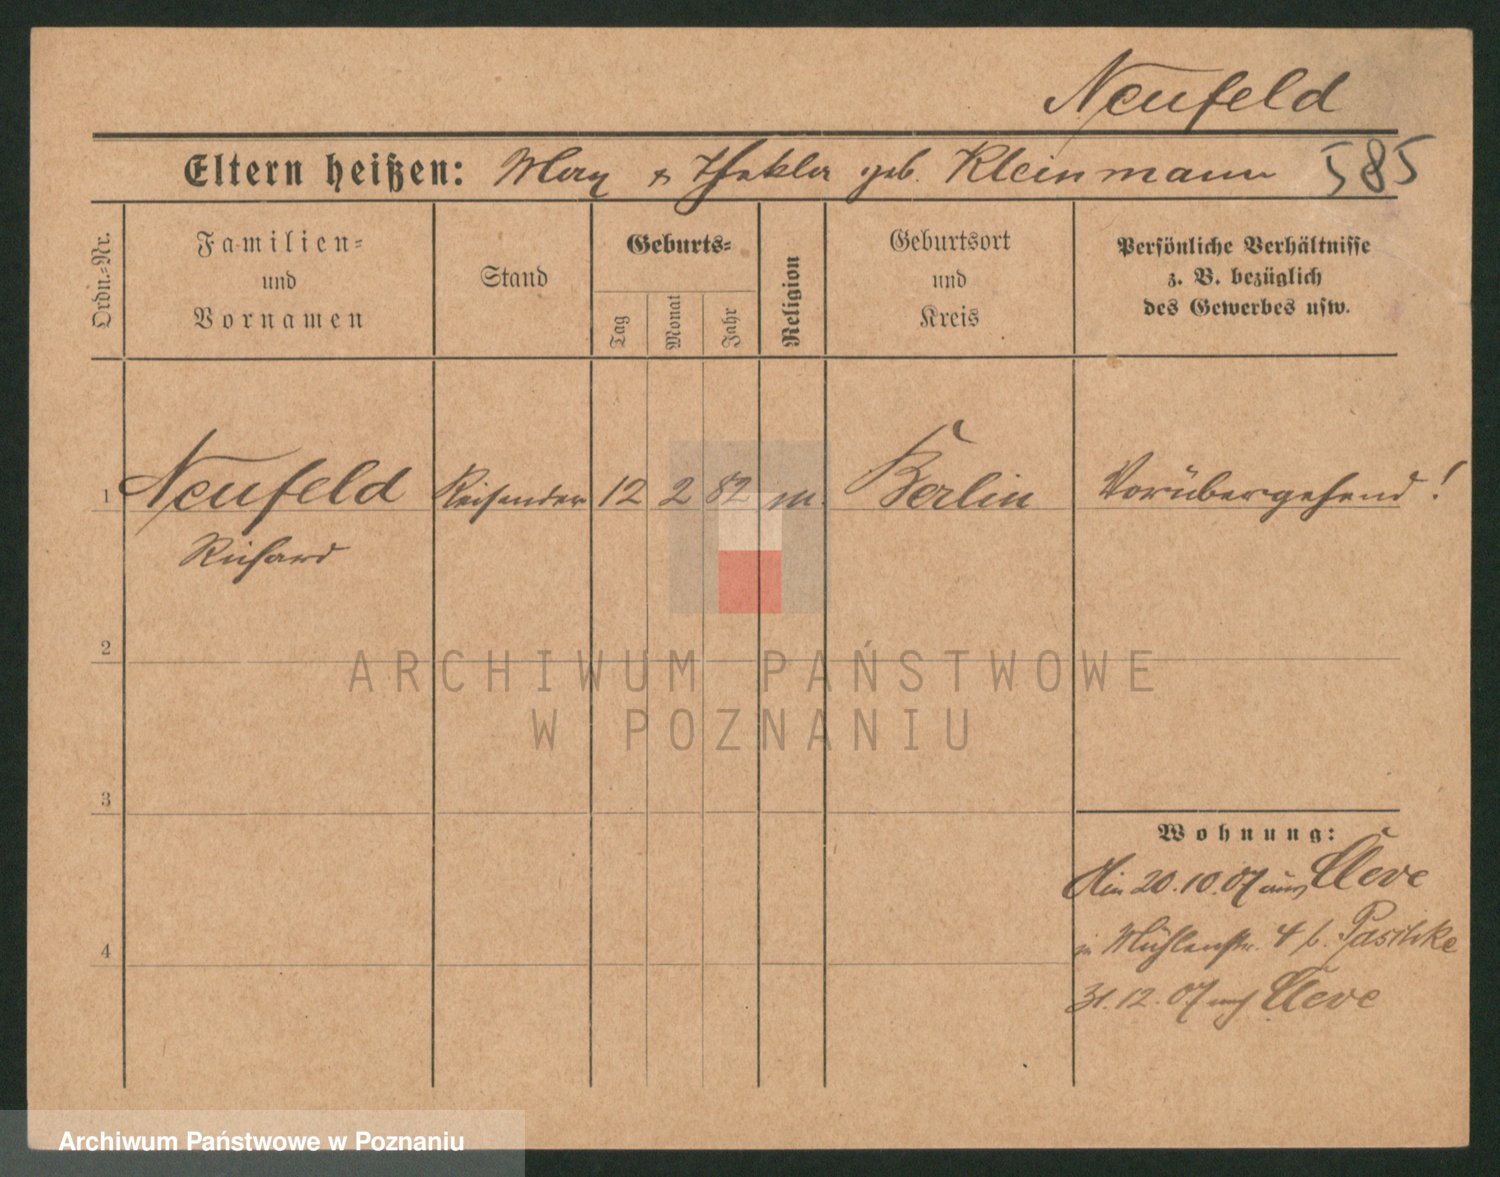 Neufeld
Eltern heißen: Max & Thekla geb. Kleinmann 585
Ordn.-Nr.
Familien-
und
Vornamen
Stand
Geburts-
Tag
Monat
Jahr
Religion
Geburtsort
und
Kreis
Persönliche Verhältnisse
z. B. bezüglich
des Gewerbes usw.
1 Neufeld Reisender 12 2 82 m. Berlin Vorübergehend!
Richard
2
ARCHIWUM PAŃSTWOWE
W POZNANIU
3
Wohnung:
20.10.07 aus Cleve
in Mühlenstr. 4 b. Paschke
4
31.12.07 nach Cleve
Archiwum Państwowe w Poznaniu